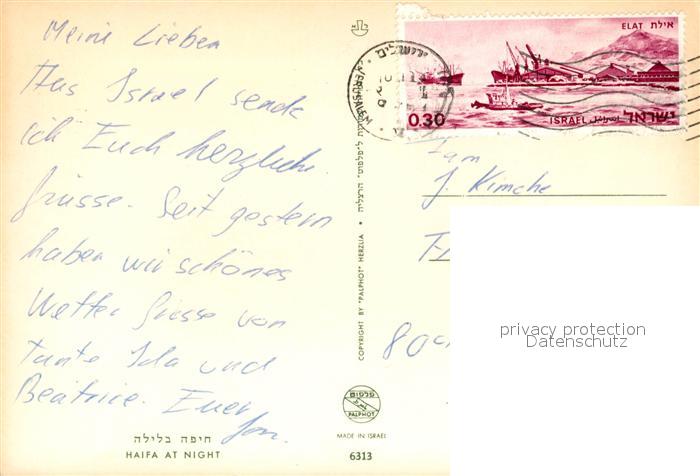 Meine Lieben
Aus Israel sende
ich Euch herzliche
Grüsse. Seit gestern
haben wir schönes
Wetter Grüsse von
Tante Ida und
Beatrice. Euer
חיפה בלילה
HAIFA AT NIGHT
COPYRIGHT BY "PALPHOT" HERZLIA •
פלפוט
PALPHOT
MADE IN ISRAEL
6313
ירושלים
JERUSALEM
ELAT אילת
0.30
ISRAEL اسرائيل ישראל
Fam
J. Kimche
privacy protection
Datenschutz